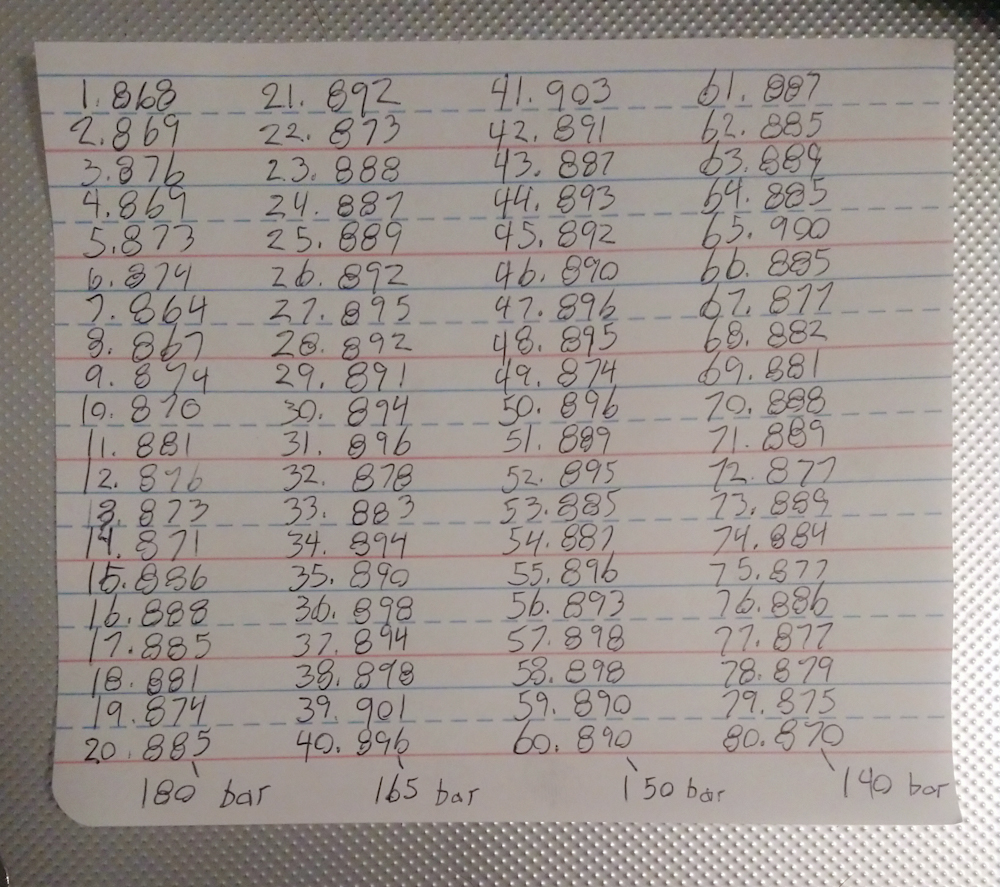 1.868 21. 892 41. 903 61. 887
2.869 22. 873 42. 891 62. 885
3.876 23. 888 43. 887 63.889
4.869 24. 887 44. 893 64. 885
5.873 25. 889 45. 892 65. 900
6.874 26. 892 46. 890 66. 885
7.864 27. 895 47. 896 67. 877
8. 867 28. 892 48. 895 68. 882
9. 874 29. 891 49. 874 69. 881
10. 870 30. 894 50. 896 70. 888
11. 881 31. 896 51. 889 71. 889
12. 876 32. 878 52. 895 72. 877
13. 873 33. 883 53.885 73. 889
14. 871 34. 894 54. 887 74. 884
15.886 35. 890 55.896 75.877
16. 888 36. 898 56. 893 76.886
17.885 37. 894 57. 898 77. 877
18. 881 38.898 58. 898 78. 879
19. 874 39. 901 59. 890 79. 875
20. 885 40. 896 60. 890 80.870
180 bar 165 bar 150 bar 140 bar